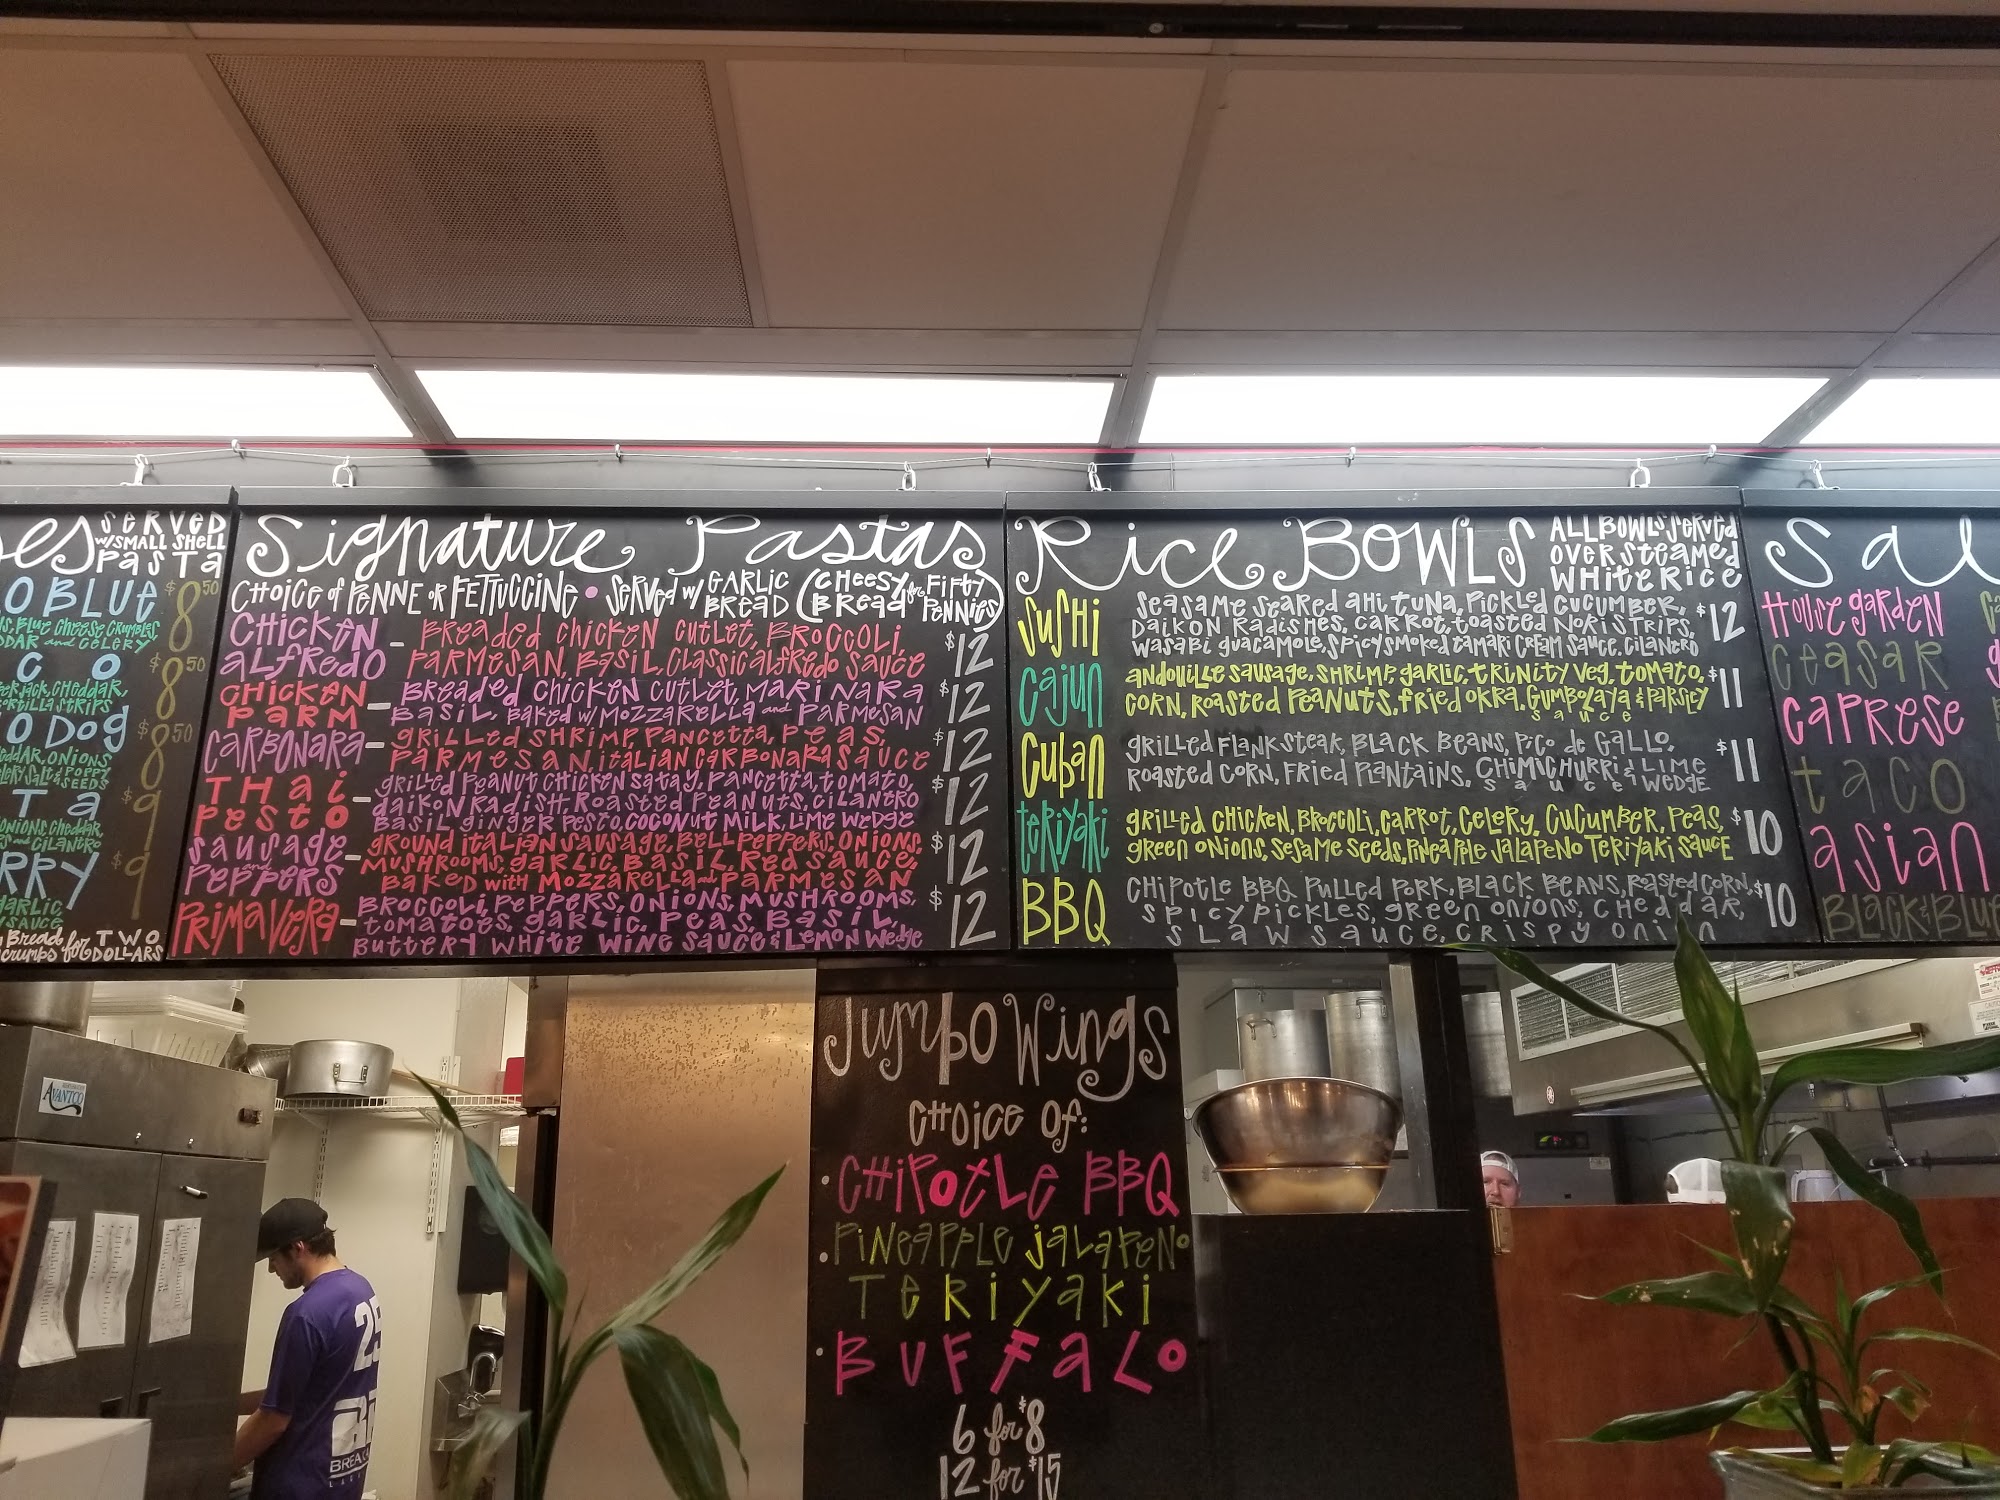 SERVED
W/SMALL SHELL
PASTA
O BLUE $8.50
BLUE CHEESE CRUMBLES,
DDAR and CELERY
CO $8.50
CHEDDAR,
TORTILLA STRIPS
O DOG $8.50
CHEDDAR, ONIONS
CELERY SALT & POPPY
SEEDS
TA $9
ONIONS, CHEDDAR,
and CILANTRO
RRY $9
GARLIC
SAUCE
BREAD for TWO
CRUMBS DOLLARS
Signature Pastas
CHOICE of PENNE OR FETTUCCINE • SERVED W/ GARLIC BREAD (CHEESY BREAD for FIFTY PENNIES)
CHICKEN ALFREDO - BREADED CHICKEN CUTLET, BROCCOLI, $12
PARMESAN, BASIL, CLASSIC ALFREDO SAUCE
CHICKEN PARM - BREADED CHICKEN CUTLET, MARINARA $12
BASIL, BAKED W/ MOZZARELLA and PARMESAN
CARBONARA - GRILLED SHRIMP, PANCETTA, PEAS, $12
PARMESAN, ITALIAN CARBONARA SAUCE
THAI PESTO - GRILLED PEANUT CHICKEN SATAY, PANCETTA, TOMATO, $12
DAIKON RADISH, ROASTED PEANUTS, CILANTRO
BASIL GINGER PESTO COCONUT MILK, LIME WEDGE
SAUSAGE and PEPPERS - GROUND ITALIAN SAUSAGE, BELL PEPPERS, ONIONS, $12
MUSHROOMS, GARLIC, BASIL, RED SAUCE,
BAKED WITH MOZZARELLA and PARMESAN
PRIMAVERA - BROCCOLI, PEPPERS, ONIONS, MUSHROOMS, $12
TOMATOES, GARLIC, PEAS, BASIL,
BUTTERY WHITE WINE SAUCE & LEMON WEDGE
Rice BOWLS
ALL BOWLS SERVED
OVER STEAMED
WHITE RICE
SUSHI SEASAME SEARED AHI TUNA, PICKLED CUCUMBER, $12
DAIKON RADISHES, CARROT, TOASTED NORI STRIPS,
WASABI GUACAMOLE, SPICY SMOKED TAMARI CREAM SAUCE, CILANTRO
CAJUN ANDOUILLE SAUSAGE, SHRIMP, GARLIC, TRINITY VEG, TOMATO, $11
CORN, ROASTED PEANUTS, FRIED OKRA, GUMBOLAYA & PARSLEY
SAUCE
CUBAN GRILLED FLANK STEAK, BLACK BEANS, PICO de GALLO, $11
ROASTED CORN, FRIED PLANTAINS, CHIMICHURRI & LIME
SAUCE WEDGE
TERIYAKI GRILLED CHICKEN, BROCCOLI, CARROT, CELERY, CUCUMBER, PEAS, $10
GREEN ONIONS, SESAME SEEDS, PINEAPPLE JALAPENO TERIYAKI SAUCE
BBQ CHIPOTLE BBQ PULLED PORK, BLACK BEANS, ROASTED CORN, $10
SPICY PICKLES, GREEN ONIONS, CHEDDAR,
SLAW SAUCE, CRISPY ONION
Sal
HOUSE GARDEN
CEASAR
CAPRESE
TACO
ASIAN
BLACK & BLUE
Jumbo Wings
CHOICE OF:
• CHIPOTLE BBQ
• PINEAPPLE JALAPENO
TERIYAKI
• BUFFALO
6 for $8
12 for $15
AVANTCO
25
BREA